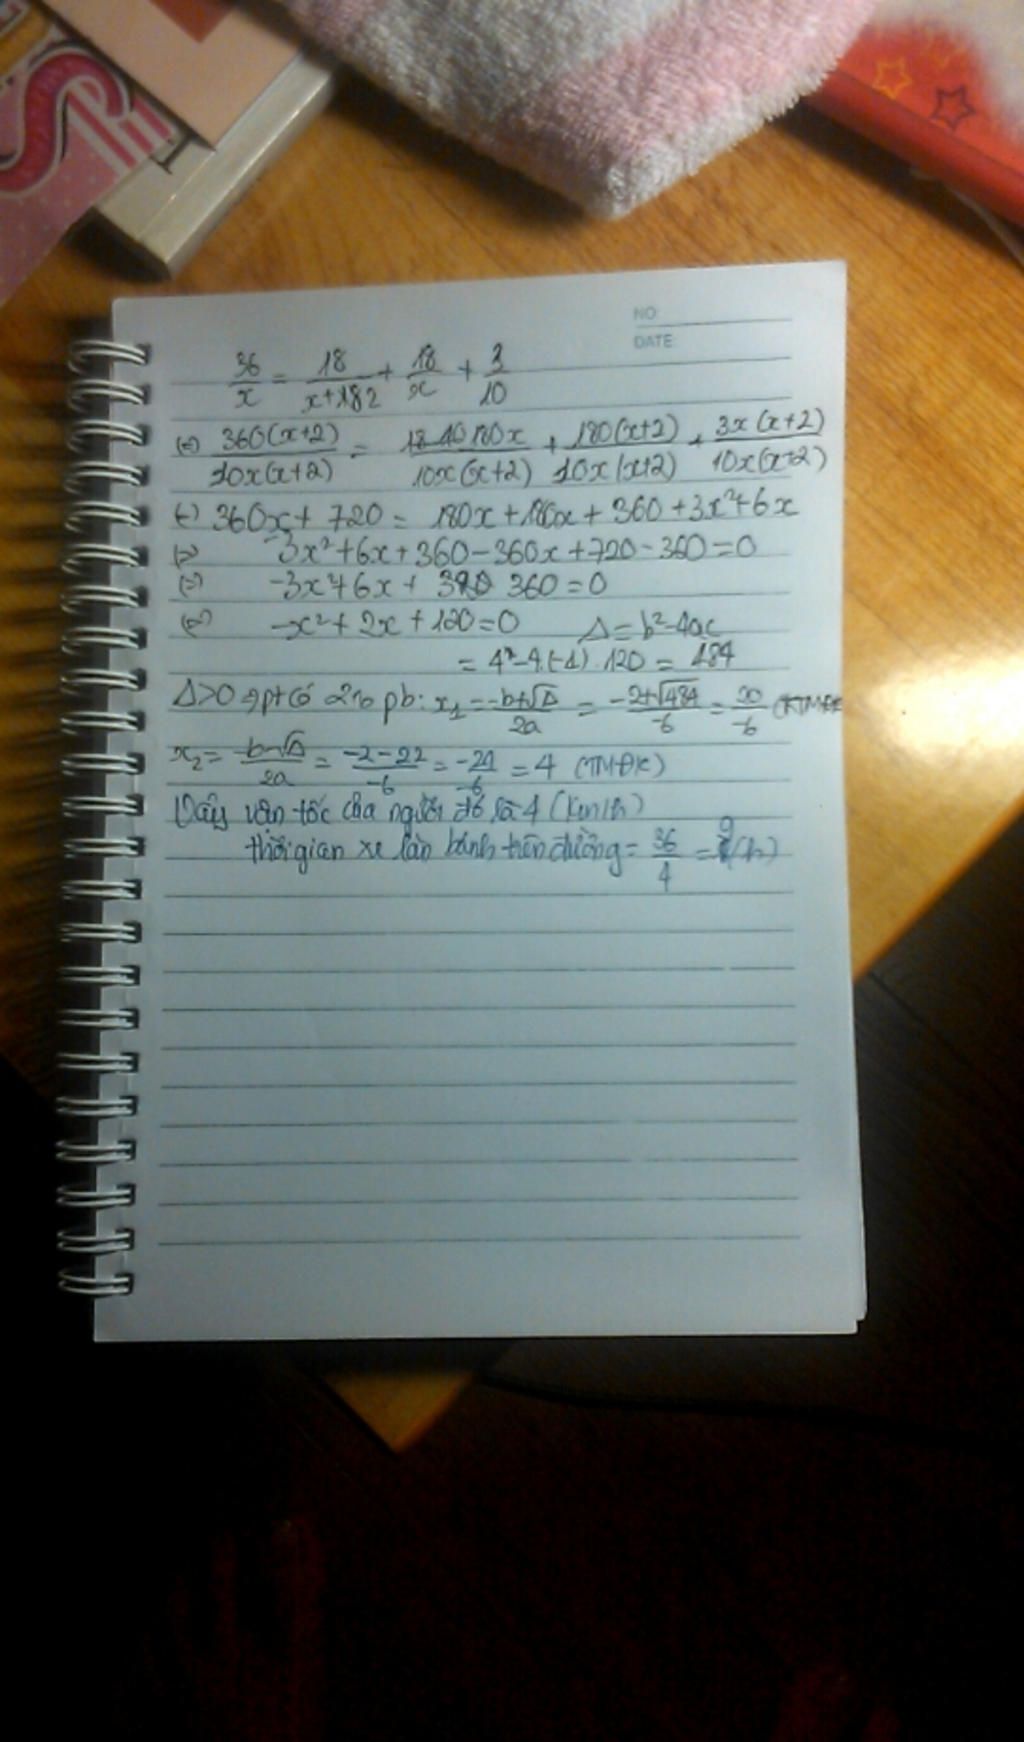 NO
DATE:
36/x = 18/(x+182) + 18/x + 3/10
(=) 360(x+2)/10x(x+2) = 18 10 180x/10x(x+2) + 180(x+2)/10x(x+2) + 3x(x+2)/10x(x+2)
(=) 360x + 720 = 180x + 180x + 360 + 3x² + 6x
(=) -3x² + 6x + 360 - 360x + 720 - 360 = 0
(=) -3x² + 6x + 360 = 0
(=) -x² + 2x + 120 = 0 Δ = b² - 4ac
= 4² - 4.(-1).120 = 484
Δ > 0 => pt có 2 no pb: x₁ = (-b+√Δ)/2a = (-2+√484)/-6 = 20/-6 (KTMĐK
x₂ = (-b-√Δ)/2a = (-2-22)/-6 = -24/-6 = 4 (TMĐK)
Vậy vận tốc của người đó là 4 (km/h)
thời gian xe lăn bánh trên đường = 36/4 = 9 (h)